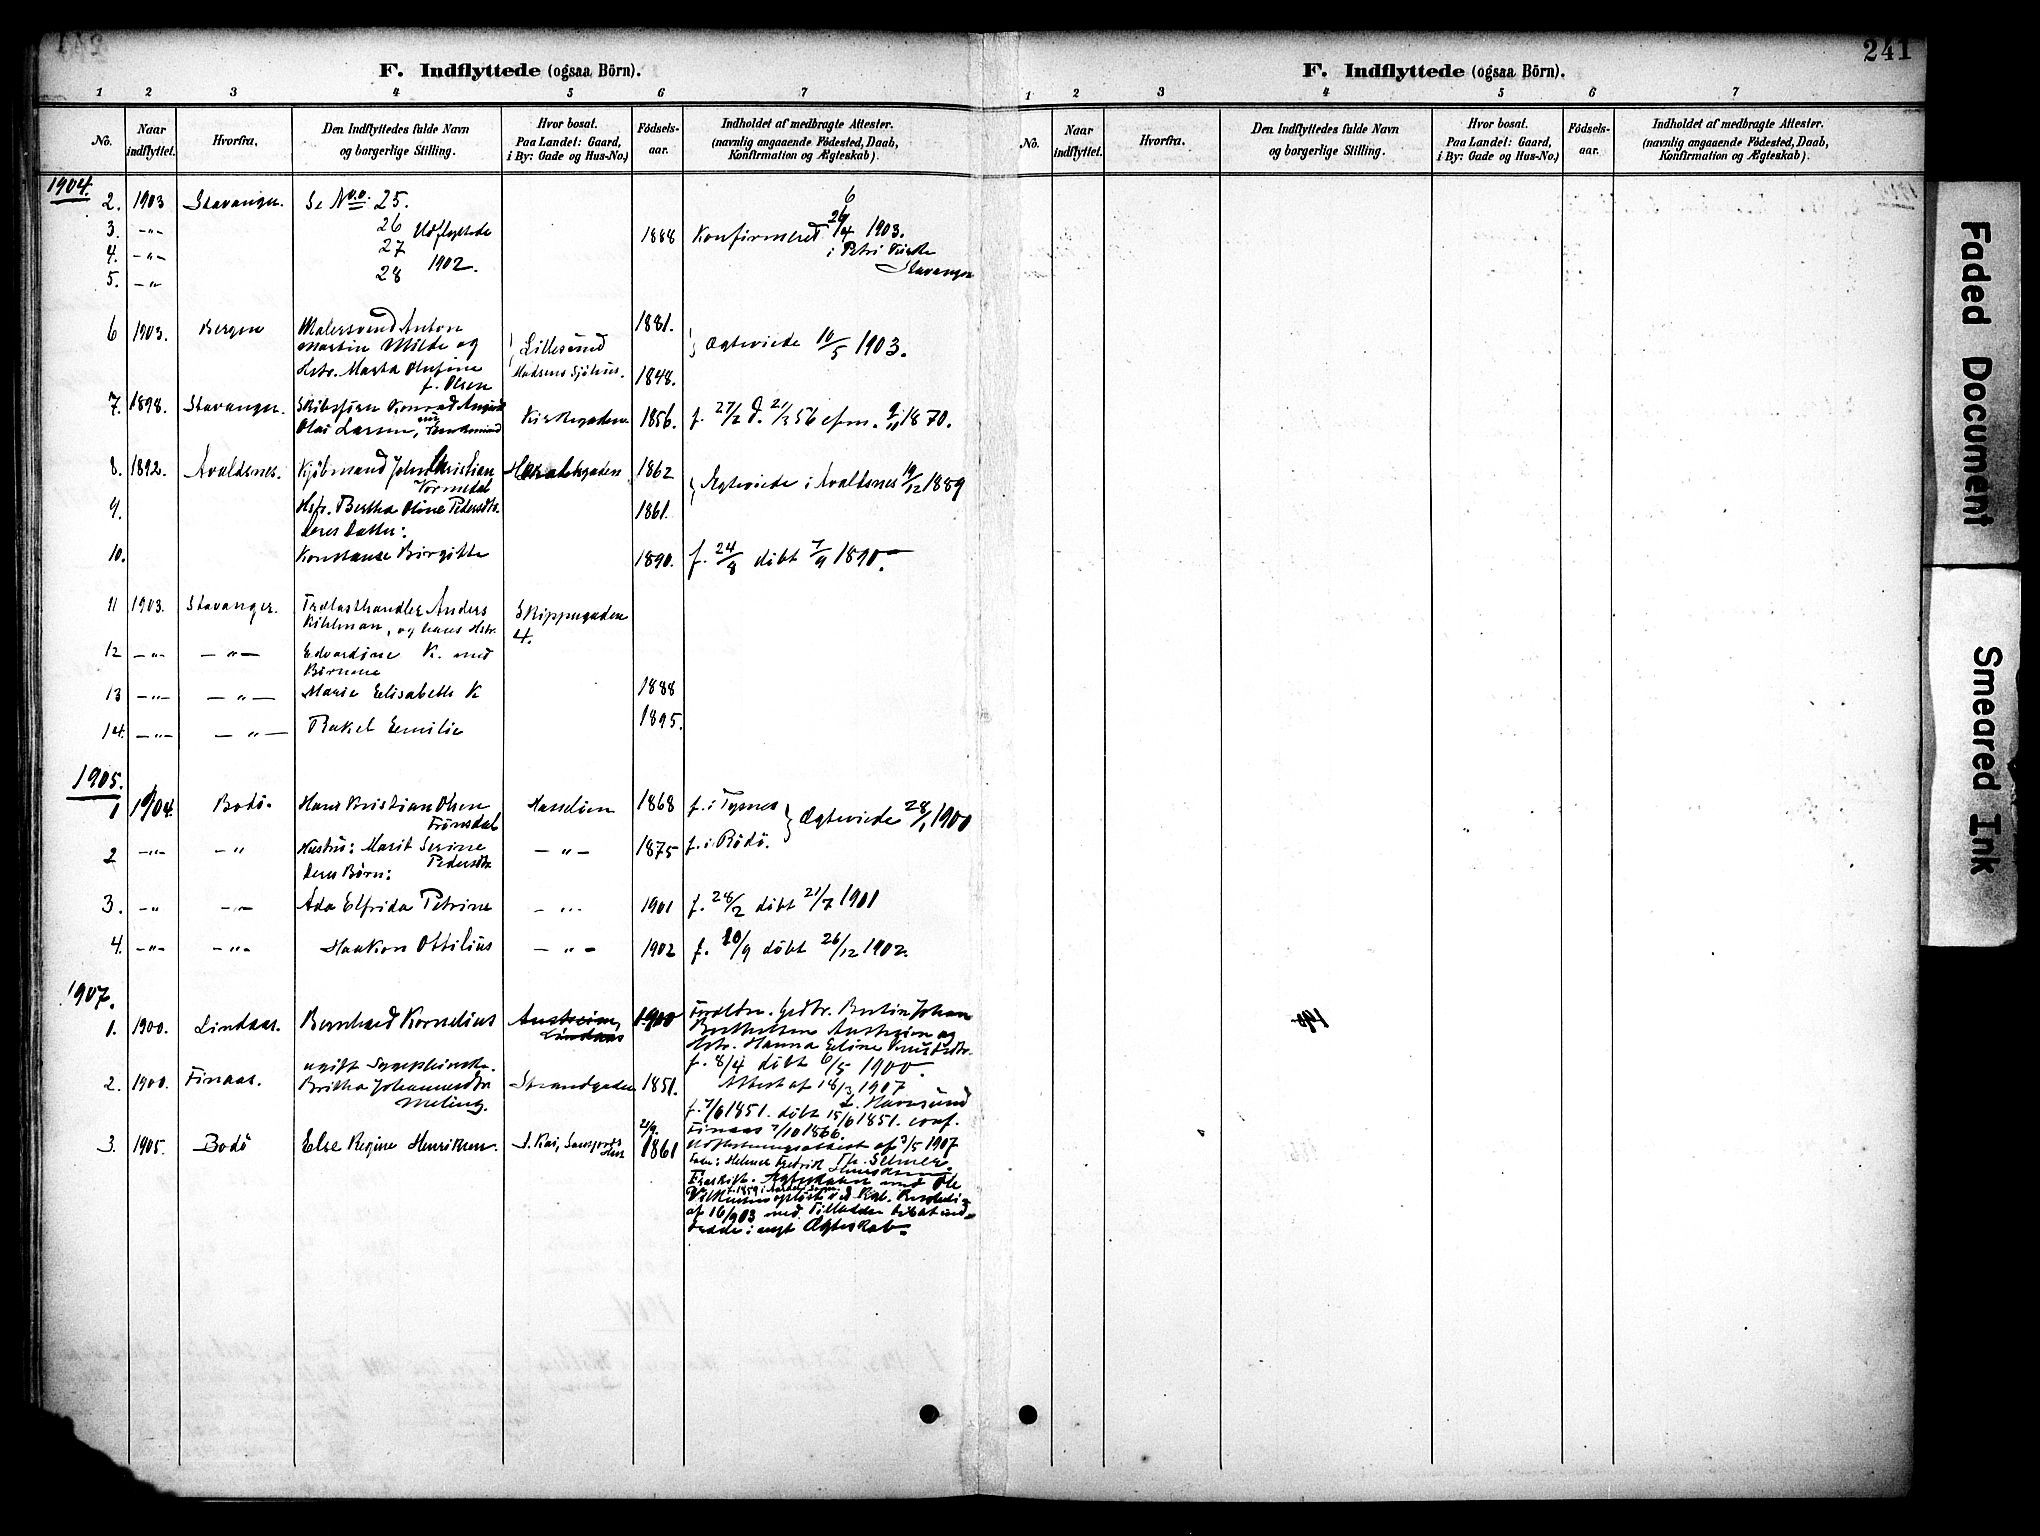 241
F. Indflyttede (ogsaa Börn).
1 2 3 4 5 6 7
No.
Naar indflyttet.
Hvorfra.
Den Indflyttedes fulde Navn og borgerlige Stilling.
Hvor bosat. Paa Landet: Gaard, i By: Gade og Hus-No.)
Födsels-aar.
Indholdet af medbragte Attester. (navnlig angaaende Födested, Daab, Konfirmation og Ægteskab).
1904.
2. 1903 Stavanger. Se No. 25.
3. -"- 26 Udflyttede 1888 Konfirmeret 1903.
4. -"- 27 i Petri Kirke
5. -"- 28 1902. Stavanger
6 1903. Bergen Malersvend Anton 1881.
Martin Milde og Lillesund Ægteviede 10/5 1903.
Hstr. Marta Olufine Madsens Sjöhus. 1848.
f. Olsen
7. 1898. Stavanger. Konrad August Kirkegaden 1856. f. 27/2 d. 21/3 56 cfm. 1870.
Olai Larsen,
8. 1892. Avaldsnes. Kjöbmand John Christian Haraldsgaden 1862
Vormedal Ægteviede i Avaldsnes 19/12 1889
9. Hstr. Bertha Oline Pedersdtr. 1861.
deres Datter:
10. Konstanse Birgitte 1890. f. 24/8 döbt 7/9 1890.
11 1903. Stavanger. Trælasthandler Anders Skippergaden
Kihlman, og hans Hstr. 4.
12 -"- -"- Edvardine K. med
Börnene
13 -"- -"- Marie Elisabeth K 1888
14. -"- -"- Rakel Emilie 1895.
1905.
1 1904. Bodö. Hans Kristian Olsen Hasseløen 1868 f. i Tysnes
Frönsdal Ægteviede 28/1 1900
2 -"- -"- Hustru: Marit Serine -"- 1875 f. i Rödö.
Pedersdtr
deres Börn:
3. -"- -"- Ada Elfrida Petrine -"- 1901 f. 28/2 döbt 21/7 1901
4. -"- -"- Haakon Ottilius -"- 1902 f. 20/9 döbt 26/12 1902.
1907.
1. 1900. Lindaas. Bernhard Kornelius Austrheim, Lindaas 1900 Forældre. Grdbr. Bertin Johan
Berthelsen Austrheim og
Hstr. Hanna Eline Knutsdtr.
f. 8/4 döbt 6/5 1900.
2. 1900. Finaas. ugift Sygepleierske. Attest af 18/3 1907
Britha Johannesdtr Strandgaden 1851.
Meling. f. 7/6 1851. döbt 15/6 1851. conf.
Finaas 7/10 1866.
3. 1905. Bodö Else Regine Henriksen. 21/9. 1861 Udflytningsattest af 3/5 1907
Ægteskabet med Ole
af 16/9 03 med Tilladelse til at ind-
træde i nyt Ægteskab.
F. Indflyttede (ogsaa Börn).
1 2 3 4 5 6 7
No.
Naar indflyttet.
Hvorfra.
Den Indflyttedes fulde Navn og borgerlige Stilling.
Hvor bosat. Paa Landet: Gaard, i By: Gade og Hus-No.)
Födsels-aar.
Indholdet af medbragte Attester. (navnlig angaaende Födested, Daab, Konfirmation og Ægteskab).
Faded Document
Smeared Ink